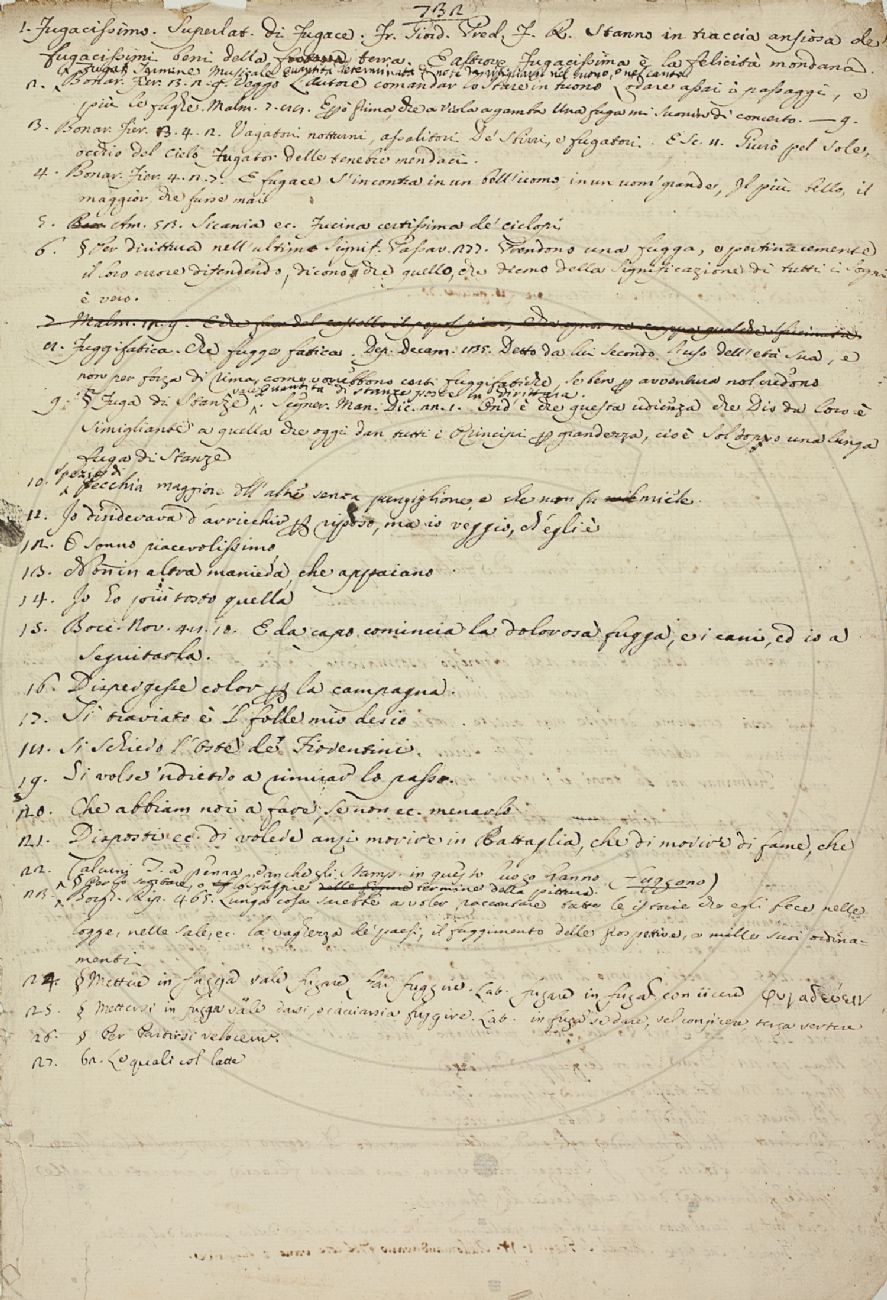 732
1. Fugacissimo. Superlat. di Fugace. Fr. Giord. Pred. J. R. Stanno in traccia ansiosa de'
fugacissimi beni della terra. E altrove Fugacissima è la felicità mondana.
2. Bonar. Fier. 3. 2. 9. Veggo l'autore comandar lo stare in tuono Lodare assai i passaggi, e
più le fughe. Malm. una fuga mi suonin di concerto. — 9.
3. Bonar. Fier. 3. 4. 2. Vagatori notturni, assalitori De' Sbirri, e fugatori. E Sc. 11. Giurò pel Sole,
occhio del Cielo Fugator delle tenebre mendaci.
4. Bonar. Fier. 4. 2. 7. E fugace s'incontra in un bell'uomo, in un uom grande, Il più bello, il
maggior, che fusse mai
5. Am. 53. Sicania ec. Fucina certissima de' ciclopi
6. § Per dirittura nell'ultimo signif. Passav. 377. Prendono una fugga, e pertinacemente
il loro errore difendendo, dicono, che quello, che dicono della significazione di tutti i sogni
è vero.
8. Fuggifatica. Che fugge fatica. Dep. Decam. 135. Detto da lui secondo l'uso dell'età sua, e
non per forza di rima, come vorrebbono certi fuggifatiche, se bene per avventura nol credono
vale Quantità di stanze poste in dirittura.
9. § Fuga di Stanze. Segner. Man. Dic. 22. 1. Ond'è che questa udienza che Dio dà loro è
simigliante a quella che oggi dan tutti i Principi per grandezza, cioè sol doppo una lunga
fuga di Stanze
spezie di
10. pecchia maggiore dell'altre senza pungiglione, e che non fa miele.
11. Io d'avvicchio per riposo, ma io veggio, ch'egli è
12. E sonno piacevolissimo
13. Non in altra maniera, che appaiano
14. Io ho più tosto quella
15. Bocc. Nov. 48. 10. E da capo comincia la dolorosa fugga, e i cani, ed io a
seguitarla.
16. Dispergesse color per la campagna.
17. Sì traviato è 'l folle mio desio
18. Si schiera l'Oste de' Fiorentini.
19. Si volse 'ndietro a rimirar lo passo.
20. Che abbiam noi a fare, se non ec. menarlo
21. Disposti ec. di volere anzi morire in Battaglia, che di morire di fame, che
22. Talvini T. a penna, e anche gli Stamp. in questo luogo hanno (Fuggono)
23. Borgh. Rip. 465. Lunga cosa sarebbe a voler raccontare tutte le istorie che egli fece nelle
logge, nelle sale, ec. la vaghezza de' paesi, il fuggimento delle prospettive, e mille suoi ordina-
menti.
24. § Mettere in fugga vale fugare Far fuggire. Lat. fugare in fugam conijcere φυγαδεύειν
25. § Mettersi in fugga vale darsi, o cacciarsi a fuggire. Lat. in fugam se dare, vel conijcere terga vertere
26. § Per Partirsi velocem.
27. 62. Le quali col latte